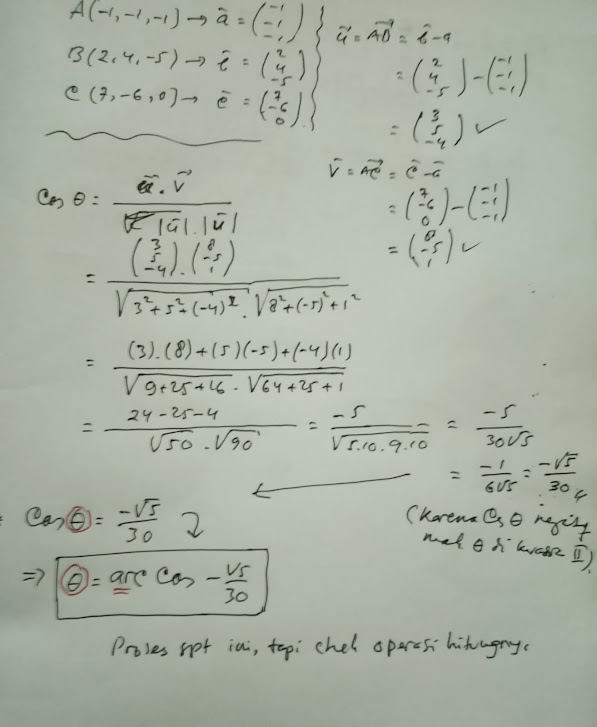 A(-1,-1,-1) → ā = (-1 -1 -1)
B(2,4,-5) → b̄ = (2 4 -5)
C(7,-6,0) → c̄ = (7 -6 0)
ū = AB = b̄-a
= (2 4 -5) - (-1 -1 -1)
= (3 5 -4) ✓
V̄ = AC = c̄-ā
= (7 -6 0) - (-1 -1 -1)
= (8 -5 1) ✓
Cos θ = ū . v̄ / |ū|.|ū|
= (3 5 -4) . (8 -5 1) / √3²+5²+(-4)² . √8²+(-5)²+1²
= (3).(8)+(5)(-5)+(-4)(1) / √9+25+16 . √64+25+1
= 24-25-4 / √50 . √90 = -5 / √5.10.9.10 = = -5 / 30√5
= -1 / 6√5 = -√5 / 30
(karena Cos θ
mak θ di II)
Cos θ = -√5 / 30
⇒ θ = arc Cos -√5 / 30
Proses spt ini, tapi chek operasi hitungnya.